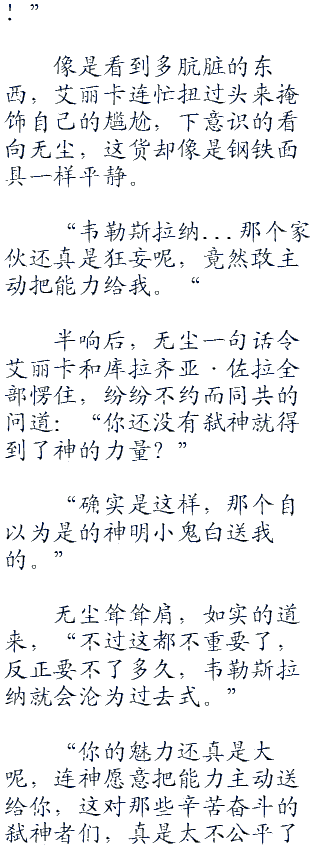 ！”
像是看到多肮脏的东
西，艾丽卡连忙扭过头来掩
饰自己的尴尬，下意识的看
向无尘，这货却像是钢铁面
具一样平静。
“韦勒斯拉纳...那个家
伙还真是狂妄呢，竟然敢主
动把能力给我。“
半响后，无尘一句话令
艾丽卡和库拉齐亚·佐拉全
部愣住，纷纷不约而同共的
问道：“你还没有弑神就得
到了神的力量？”
“确实是这样，那个自
以为是的神明小鬼白送我
的。”
无尘耸耸肩，如实的道
来，“不过这都不重要了，
反正要不了多久，韦勒斯拉
纳就会沦为过去式。”
“你的魅力还真是大
呢，连神愿意把能力主动送
给你，这对那些辛苦奋斗的
弑神者们，真是太不公平了